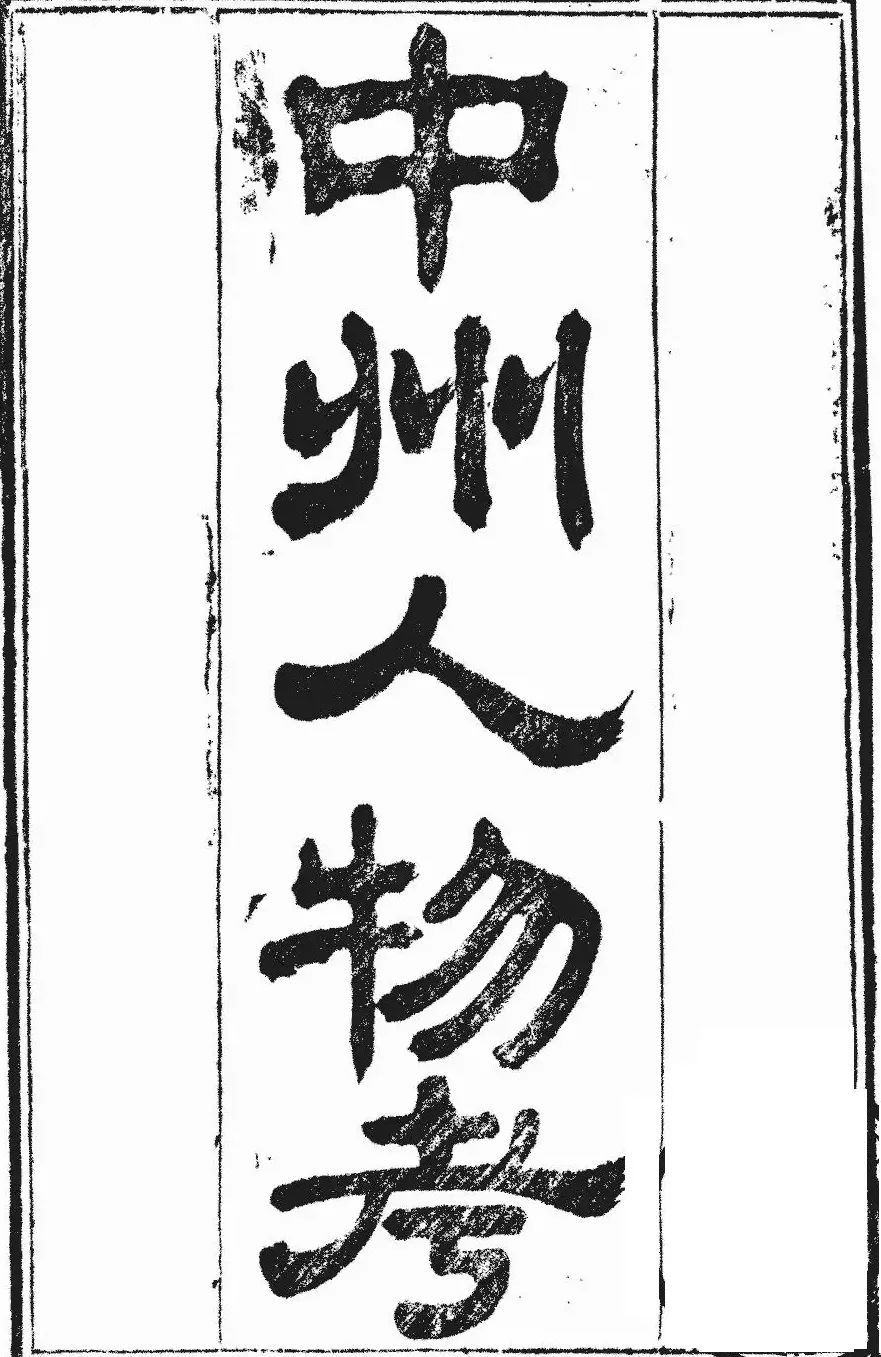 中州人物考